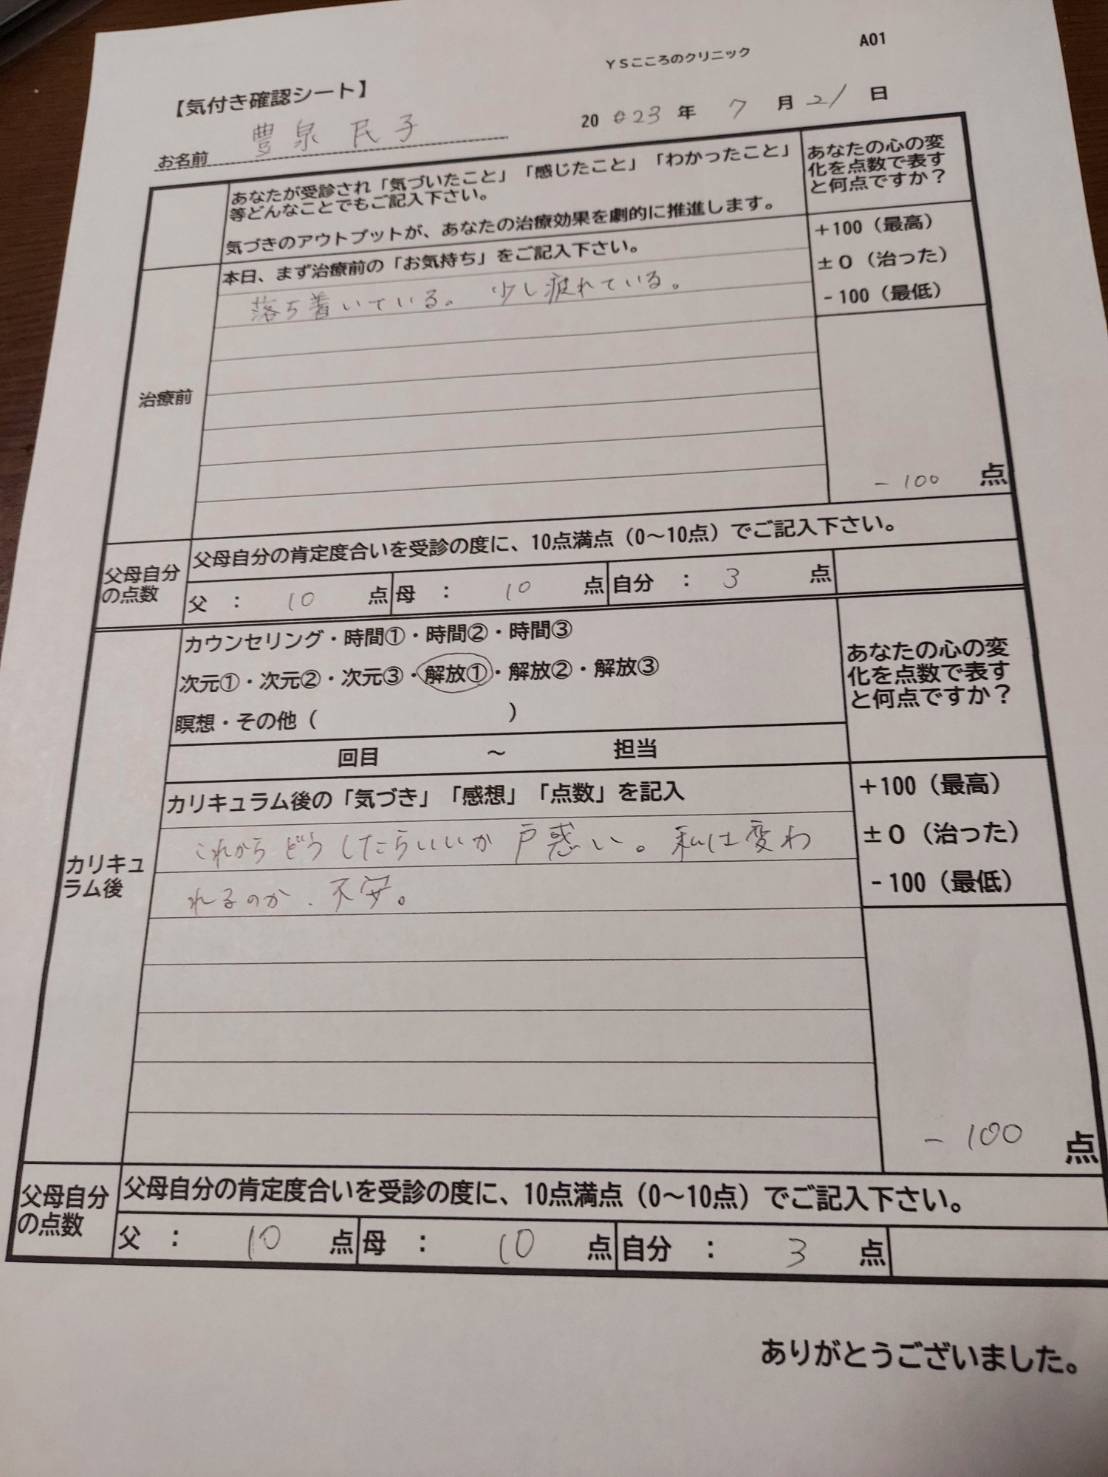 A01
YSこころのクリニック
【気付き確認シート】
20 023 年 7 月 21 日
お名前 豊泉 民子
あなたが受診され「気づいたこと」「感じたこと」「わかったこと」
等どんなことでもご記入下さい。
気づきのアウトプットが、あなたの治療効果を劇的に推進します。
あなたの心の変
化を点数で表す
と何点ですか？
本日、まず治療前の「お気持ち」をご記入下さい。
+100（最高）
±0（治った）
-100（最低）
落ち着いている。 少し疲れている。
治療前
-100 点
父母自分
の点数
父母自分の肯定度合いを受診の度に、10点満点（0～10点）でご記入下さい。
父 ： 10 点 母 ： 10 点 自分 ： 3 点
カウンセリング・時間①・時間②・時間③
次元①・次元②・次元③・解放①・解放②・解放③
瞑想・その他（ ）
あなたの心の変
化を点数で表す
と何点ですか？
回目 ～ 担当
カリキュラム後の「気づき」「感想」「点数」を記入
+100（最高）
±0（治った）
-100（最低）
カリキュ
ラム後
これから どうしたらいいか 戸惑い。 私は変わ
れるのか、不安。
-100 点
父母自分
の点数
父母自分の肯定度合いを受診の度に、10点満点（0～10点）でご記入下さい。
父 ： 10 点 母 ： 10 点 自分 ： 3 点
ありがとうございました。